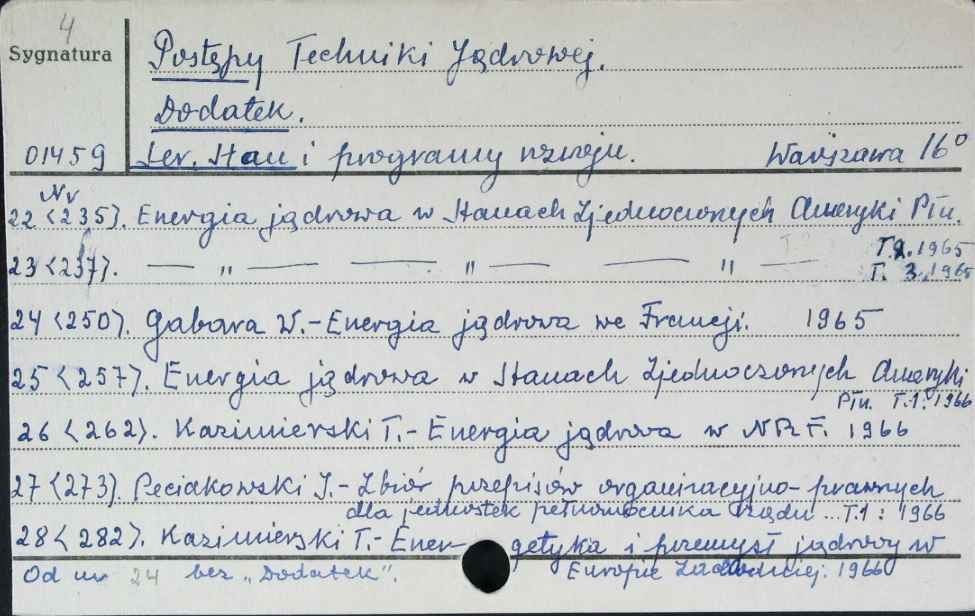 4
Sygnatura
Postępy Techniki Jądrowej.
Dodatek.
01459 Ser. Stan i programy rozwoju. Warszawa 16°
Nr
22 <235>. Energia jądrowa w Stanach Zjednoczonych Ameryki Płn.
T.2.1965
23 <237>. — " — — " — — " — T. 3.1965
24 <250>. Gabara W.-Energia jądrowa we Francji. 1965
25 <257>. Energia jądrowa w Stanach Zjednoczonych Ameryki
Płn. T.1: 1966
26 <262>. Kazimierski T.-Energia jądrowa w NRF. 1966
27 <273>. Peciakowski J.-Zbiór przepisów organizacyjno-prawnych
dla jednostek pełnomocnika rządu ...T.1: 1966
28 <282>. Kazimierski T.-Energetyka i przemysł jądrowy w
Europie Zachodniej. 1966
Od nr 24 bez „Dodatek".